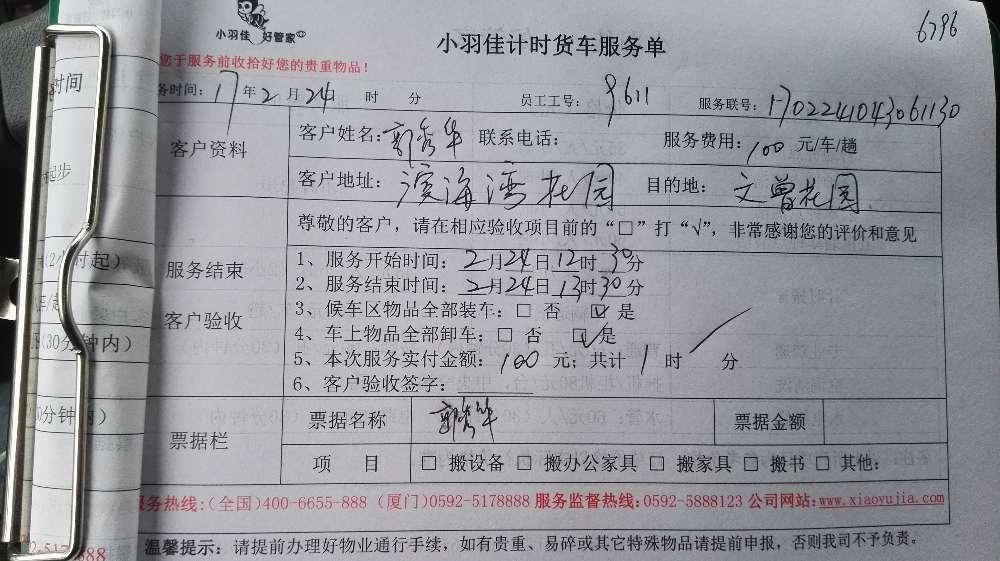 小羽佳 好管家
小羽佳计时货车服务单
6796
您于服务前收拾好您的贵重物品！
务时间：17年2月24 时 分 员工工号：9611 服务联号：170224104306 1130
时间
客户资料
客户姓名：郭秀华 联系电话： 服务费用：100 元/车/趟
起步
客户地址：滨海湾花园 目的地：文曾花园
尊敬的客户，请在相应验收项目前的“□”打“√”，非常感谢您的评价和意见
服务结束
客户验收
1、服务开始时间：2月24日12时30分
2、服务结束时间：2月24日13时30分
3、候车区物品全部装车：□ 否 ☑ 是
4、车上物品全部卸车：□ 否 ☑ 是
5、本次服务实付金额：100 元；共计 1 时 / 分
6、客户验收签字：
时起）
(30分钟内)
0分钟内）
票据栏
票据名称 郭秀华 票据金额
项 目 □ 搬设备 □ 搬办公家具 □ 搬家具 □ 搬书 □ 其他：
服务热线：(全国)400-6655-888 (厦门)0592-5178888 服务监督热线：0592-5888123 公司网站：www.xiaoyujia.com
温馨提示：请提前办理好物业通行手续，如有贵重、易碎或其它特殊物品请提前申报，否则我司不予负责。